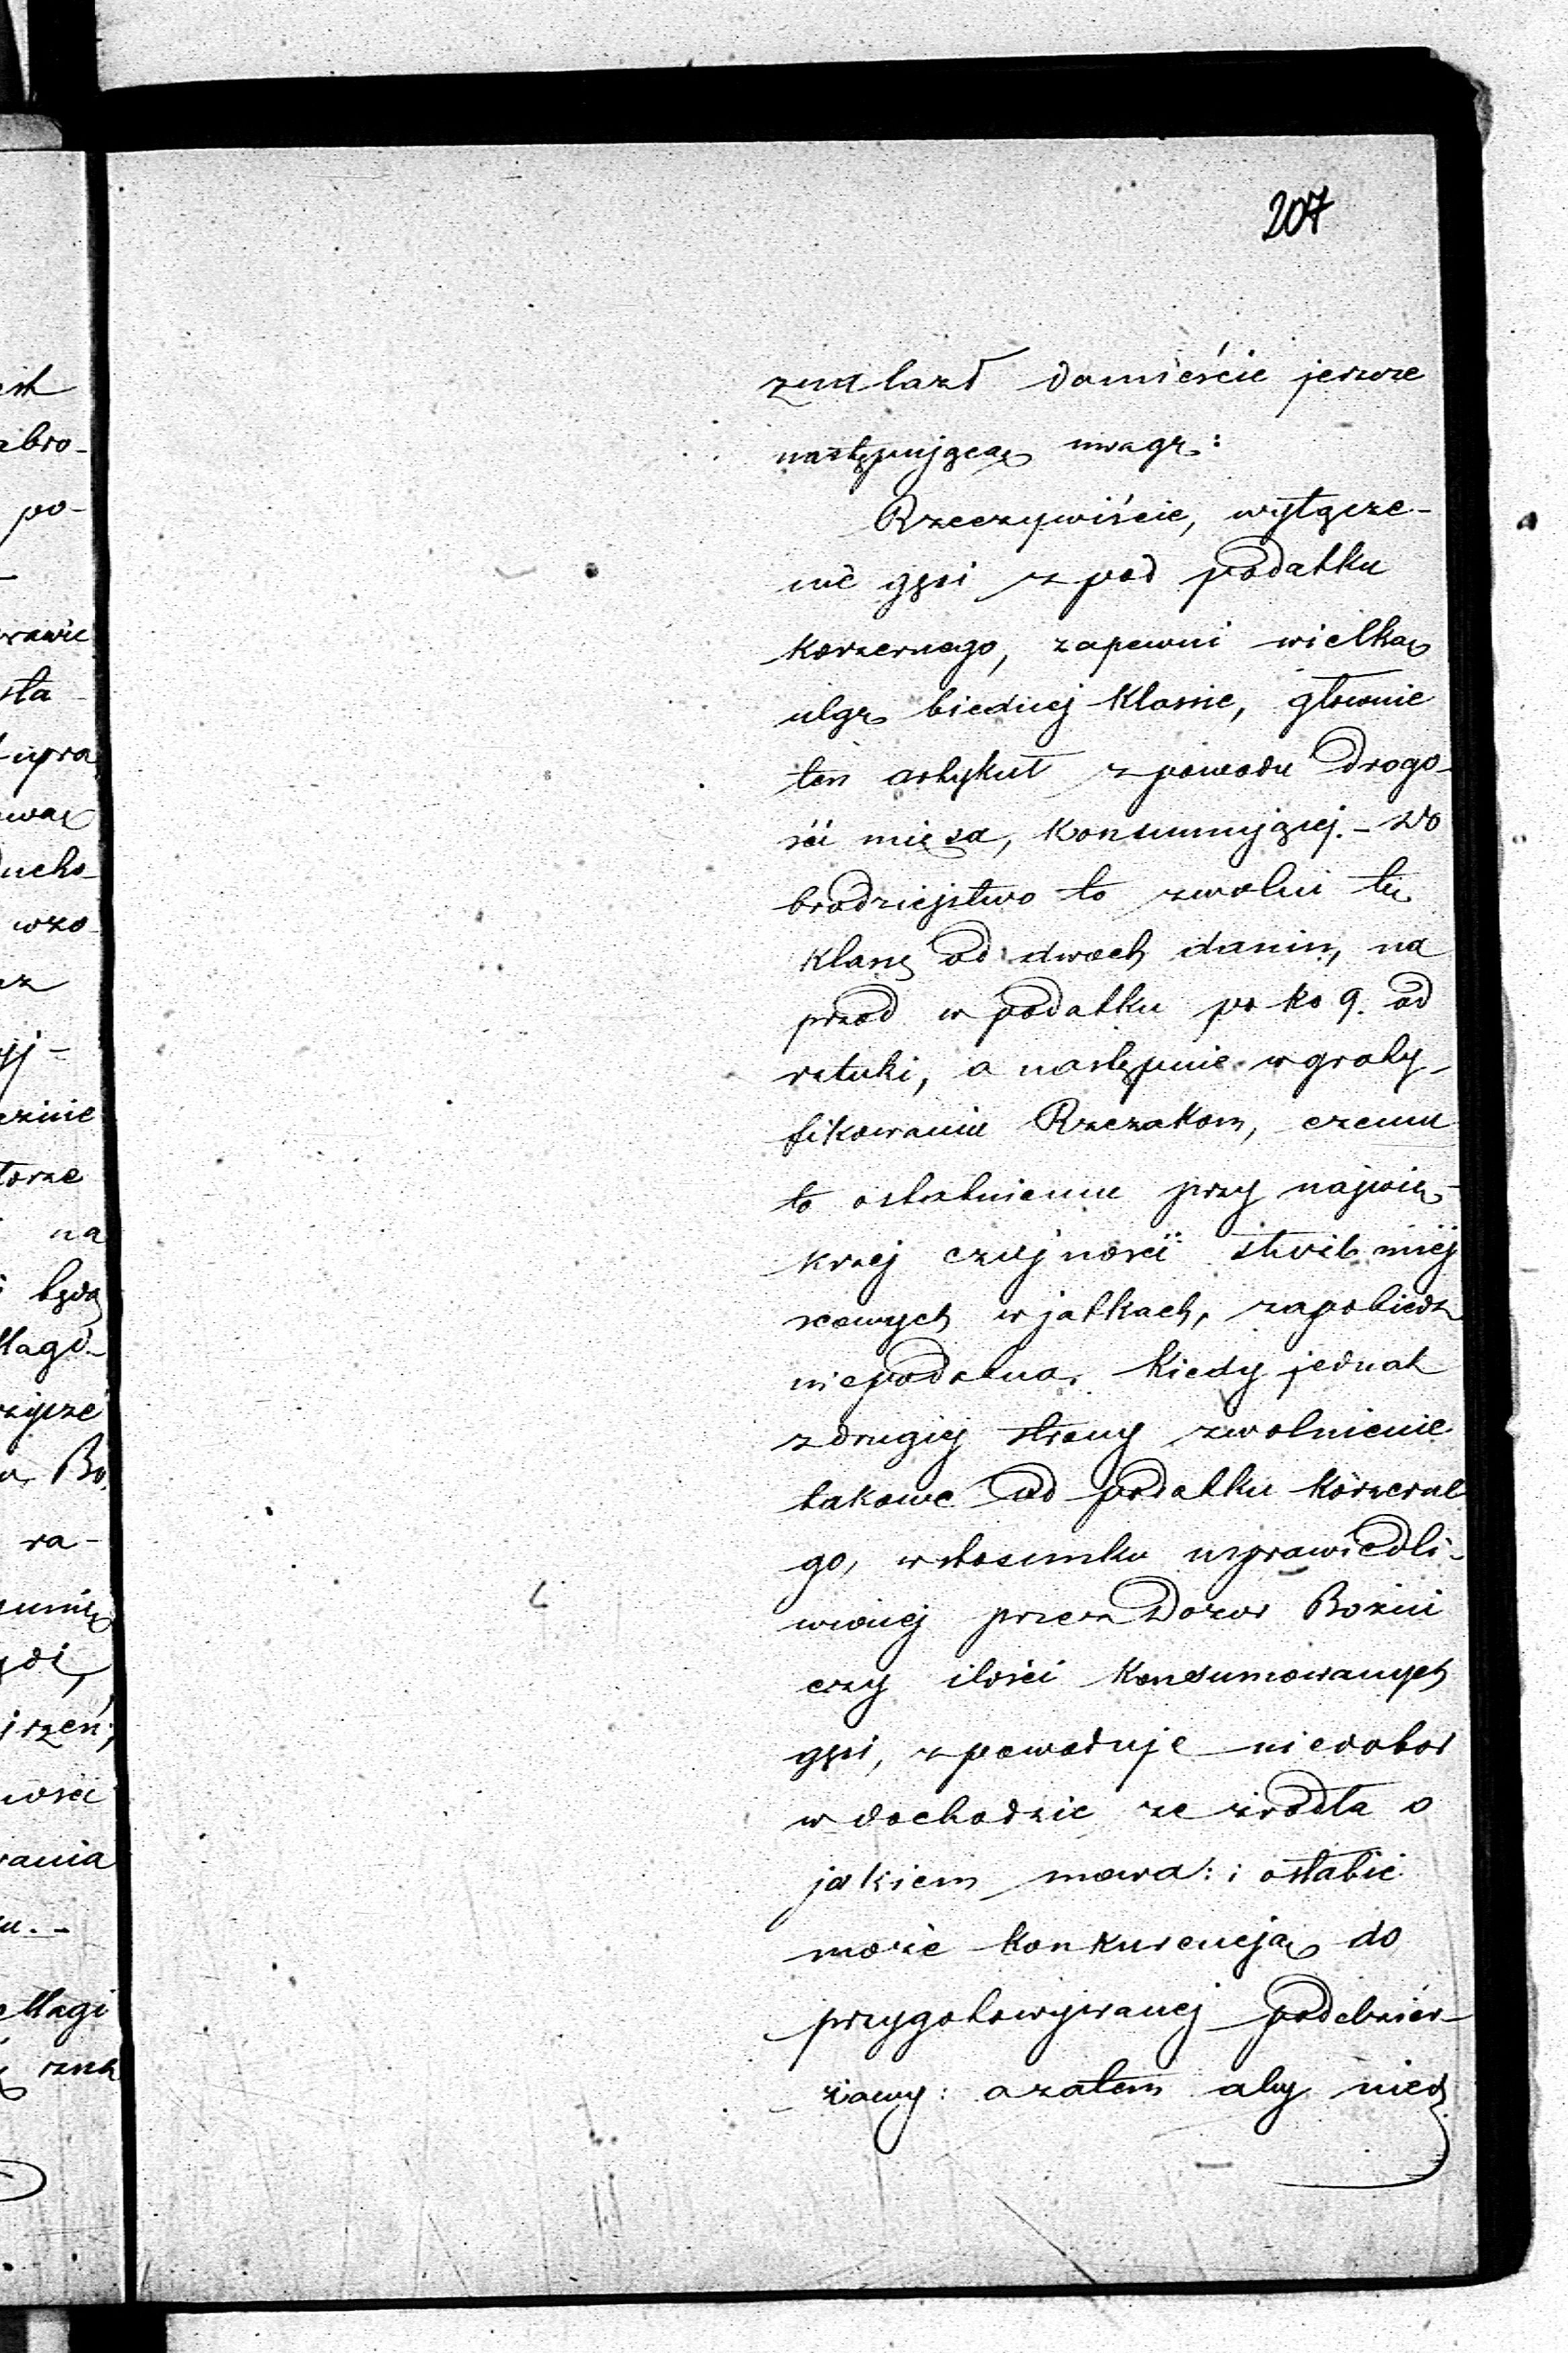 207
znalazł domieście jeszcze
następującą uwagę:
Rzeczywiście, wyłącze-
nie gęsi z pod podatku
koszernego, zapewni wielką
ulgę biednej klassie, głównie
ten artykuł z powodu drogo-
ści mięsa, konsumującej. – Do
brodziejstwo to zwolni tę
klasę od dwoch danin, na
przod w podatku po ko 9. od
sztuki, a następnie w graty-
fikowaniu Rzezakom, czemu
to ostatniemu przy najwię-
kszej czujności służb miej
scowych w jatkach, zapobiedz
niepodobna. Kiedy jednak
z drugiej strony zwolnienie
takowe od podatku koszerne
go, w stosunku usprawiedli-
wionej przez Dozor Bożni
czy ilości konsumowanych
gęsi, spowoduje niedobor
w dochodzie ze źrodła o
jakiem mowa: i osłabić
może konkurencją do
przygotowywanej podobnier-
żawy: a zatem aby nied
est
abro-
po-
rawie
sta
upra
wą
ducho-
wzo
ez
yj-
cznie
torze
na
będą
Magi-
zyższe
Bo.
ra-
umię
ości
rania
u. –
Magi